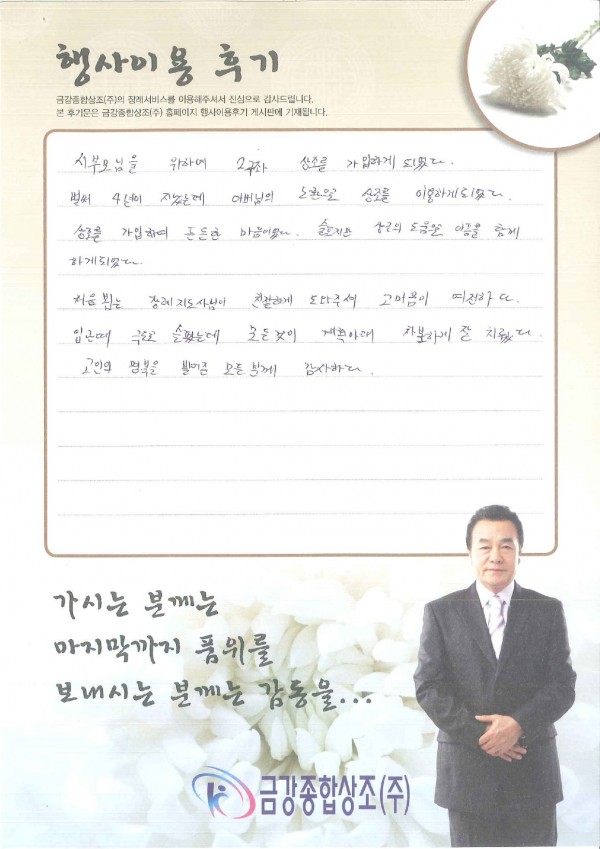 행사이용 후기
금강종합상조(주)의 장례서비스를 이용해주셔서 진심으로 감사드립니다.
본 후기문은 금강종합상조(주) 홈페이지 행사이용후기 게시판에 기재됩니다.
시부모님을 위하여 2구좌 상조를 가입하게 되었다.
벌써 4년이 지났는데 아버님의 노환으로 상조를 이용하게되었다.
상조를 가입하여 든든한 마음이었다. 슬프지만 도움으로 아픔을 함께
하게되었다.
처음 뵙는 장례지도사님이 친절하게 도와주셔 고마움이 여전하다.
입관때 슬펐는데 모든것이 계획아래 차분하게 잘 치뤘다.
고인의 명복을 빌어준 모든분께 감사하다.
가시는 분께는
마지막까지 품위를
보내시는 분께는 감동을...
금강종합상조(주)